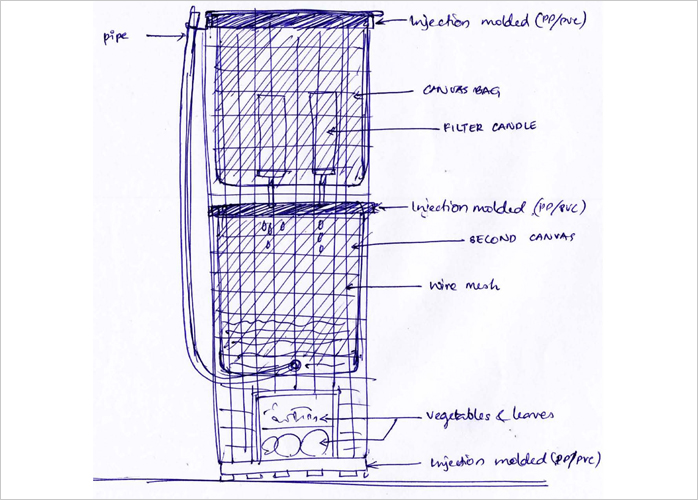 Injection molded (PP/PVC)
pipe
CANVAS BAG
FILTER CANDLE
Injection molded (PP/PVC)
SECOND CANVAS
Wire mesh
Vegetables & leaves
Injection molded (PP/PVC)